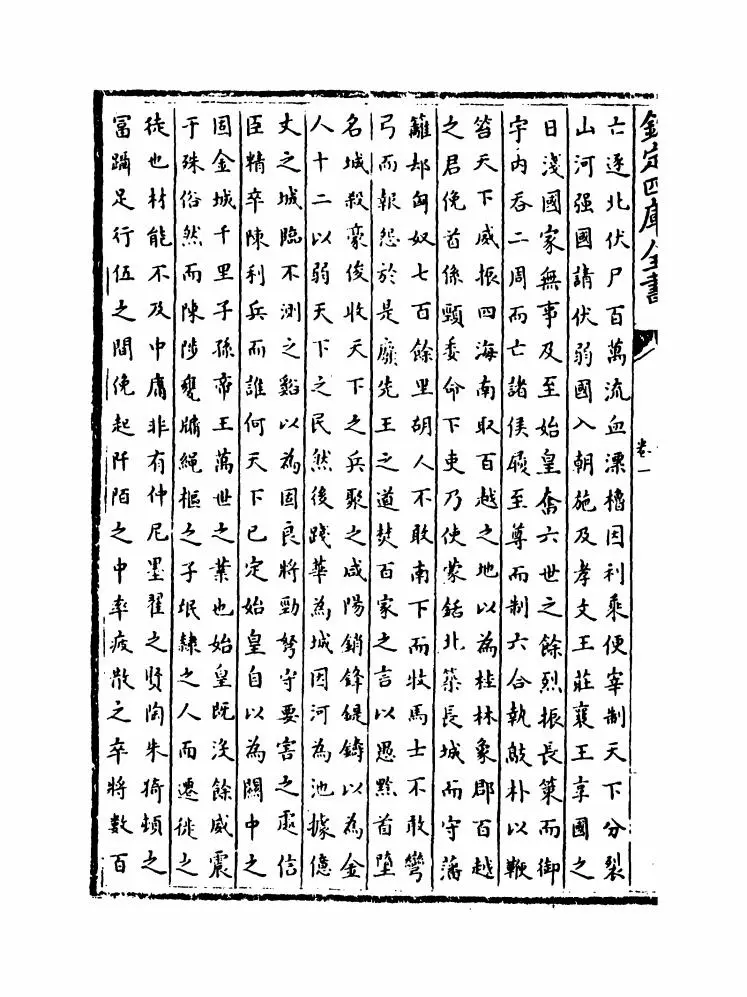 欽定四庫全書
卷一
亡逐北伏尸百萬流血漂櫓因利乘便宰制天下分裂
山河强國請伏弱國入朝施及孝文王莊襄王享國之
日淺國家無事及至始皇奮六世之餘烈振長策而御
宇内吞二周而亡諸侯履至尊而制六合執敲朴以鞭
笞天下威振四海南取百越之地以為桂林象郡百越
之君俛首係頸委命下吏乃使蒙恬北築長城而守藩
籬却匈奴七百餘里胡人不敢南下而牧馬士不敢彎
弓而報怨於是廢先王之道焚百家之言以愚黔首墮
名城殺豪俊收天下之兵聚之咸陽銷鋒鍉鑄以為金
人十二以弱天下之民然後踐華為城因河為池據億
丈之城臨不測之谿以為固良將勁弩守要害之處信
臣精卒陳利兵而誰何天下已定始皇自以為關中之
固金城千里子孫帝王萬世之業也始皇既沒餘威震
于殊俗然而陳涉甕牖繩樞之子氓隸之人而遷徙之
徒也材能不及中庸非有仲尼墨翟之賢陶朱猗頓之
富躡足行伍之間俛起阡陌之中率疲散之卒將數百